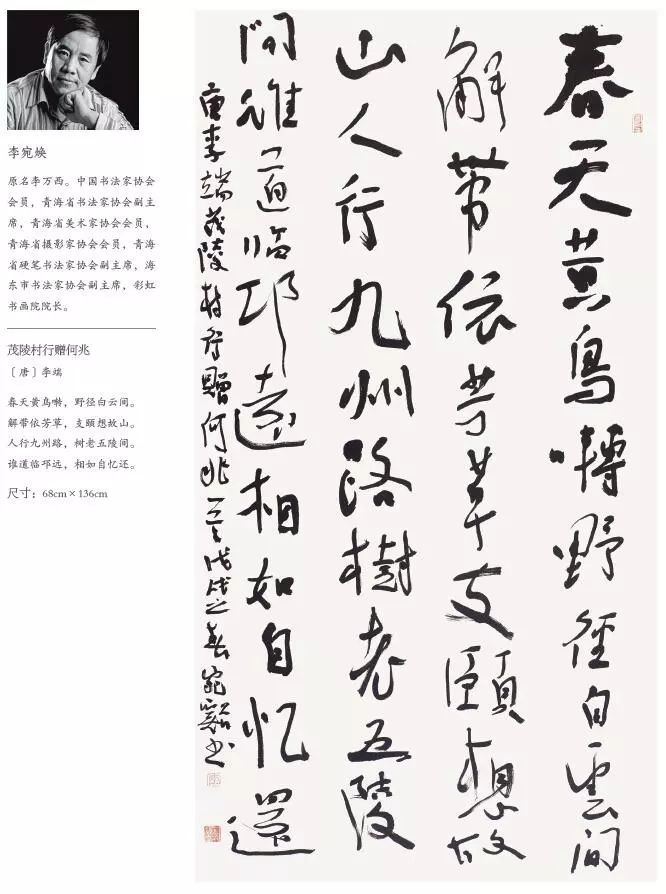 李宛焕
原名李万西。中国书法家协会
会员，青海省书法家协会副主
席，青海省美术家协会会员，
青海省摄影家协会会员，青海
省硬笔书法家协会副主席，海
东市书法家协会副主席，彩虹
书画院院长。
茂陵村行赠何兆
［唐］李端
春天黄鸟啭，野径白云间。
解带依芳草，支颐想故山。
人行九州路，树老五陵间。
谁道临邛远，相如自忆还。
尺寸：68cm×136cm
春天黄鳥囀野徑白雲間
解带依芳草支頤想故
山人行九州路樹老五陵
间谁道临邛遠相如自忆還
唐李端茂陵村行贈何兆戊戌之春宛谿书